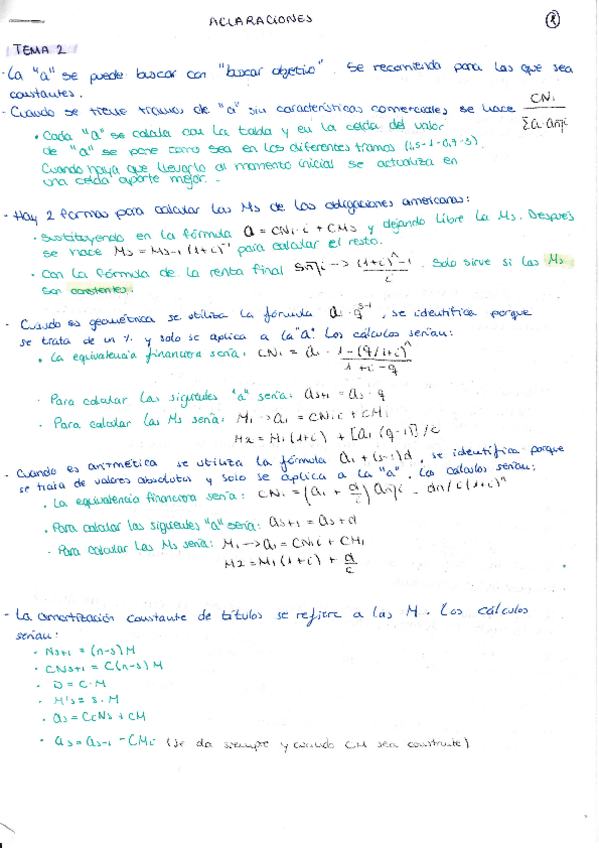 ACLARACIONES
1
TEMA 2
- La "a" se puede buscar con "buscar objetivo". Se recomienda para las que sea
constantes.
- Cuando se tiene tramos de "a" sin características comerciales se hace CN₁ / Σa·an̄|i
• Cada "a" se calcula con la tabla y en la celda del valor
de "a" se pone como sea en los diferentes tramos (1,5-1-0,7-5).
Cuando haya que llevarlo al momento inicial se actualiza en
una celda aparte mejor.
- Hay 2 formas para calcular las Ms de las obligaciones americanas:
• Sustituyendo en la fórmula a = CN₁·i + CMs y dejando libre la Ms. Después
se hace Ms = Ms-1 (1+i)⁻¹ para calcular el resto.
• Con la fórmula de la renta final Sn̄|i -> (1+i)^n - 1 / i. Solo sirve si las Ms
son constantes.
- Cuando es geométrica se utiliza la fórmula a₁·q^s-1, se identifica porque
se trata de un % y solo se aplica a la "a". Los cálculos serían:
• La equivalencia financiera sería: CN₁ = a₁ · 1-(q/1+i)^n / 1+i-q
• Para calcular las siguientes "a" sería: as+1 = as·q
• Para calcular las Ms sería: M₁ -> a₁ = CN₁i + CM₁
M2 = M₁(1+i) + [a₁(q-1)]/c
- Cuando es aritmética se utiliza la fórmula a₁+(s-1)d, se identifica porque
se trata de valores absolutos y solo se aplica a la "a". Los cálculos serían:
• La equivalencia financiera sería: CN₁ = (a₁ + d/i) an̄|i - dn/i(1+i)^n
• Para calcular las siguientes "a" sería: as+1 = as+d
- Para calcular las Ms sería: M₁ -> a₁ = CN₁i + CM₁
M2 = M₁(1+i) + d/c
- La amortización constante de títulos se refiere a las M. Los cálculos
serían:
• Ns+1 = (n-s) M
• CNs+1 = C(n-s) M
• D = C·M
• M's = s·M
• as = CcNs + CM
• as = as-1 - CMi (se da siempre y cuando CM sea constante)